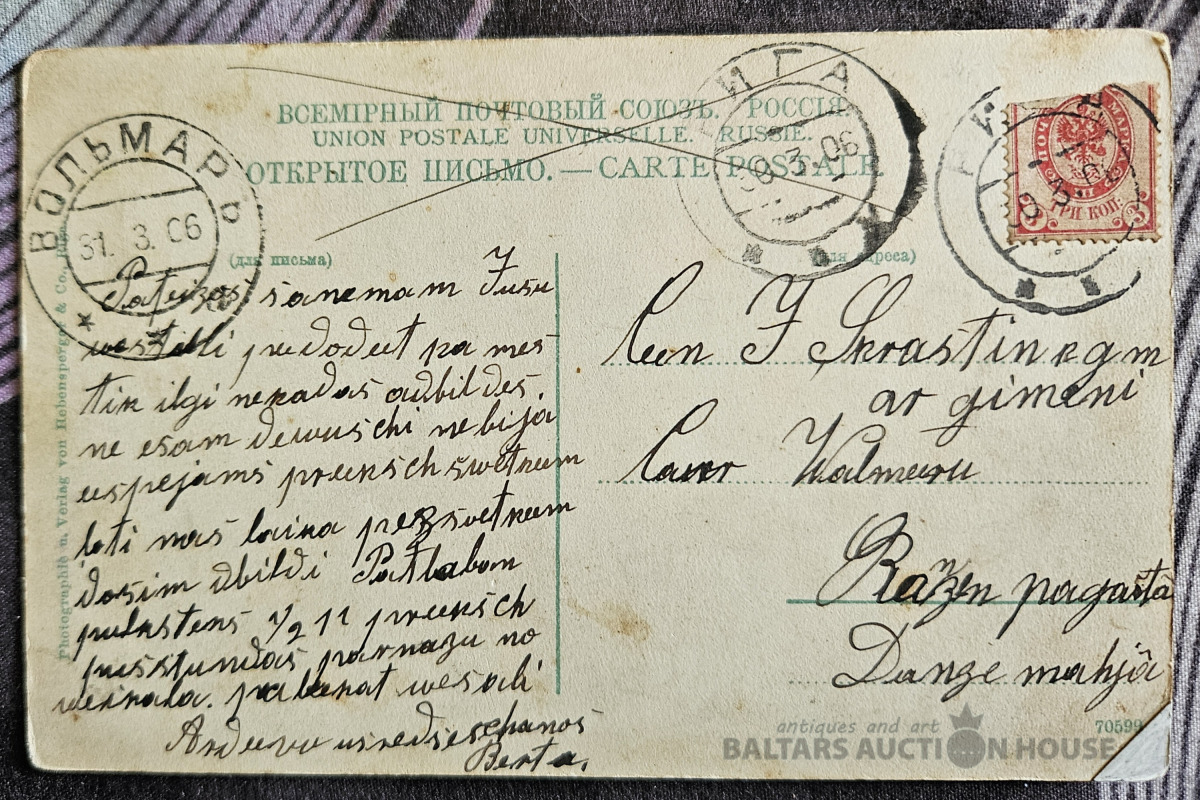 ВСЕМІРНЫЙ ПОЧТОВЫЙ СОЮЗЪ. РОССІЯ.
UNION POSTALE UNIVERSELLE. RUSSIE.
ОТКРЫТОЕ ПИСЬМО. — CARTE POSTALE.
ВОЛЬМАРЪ
31. 3. 06
РИГА
30. 3. 06
МАРК
ТРИ КОП.
3 3
(для письма)
(для адреса)
Photographie u. Verlag von Hebensperger & Co., Riga
sanemam Jusu
westuli
tik ilgi nekadas adbildes
ne esam dewuschi nebija
eespejams preeksch swetkum
loti mas laika pez swetkum
dosim dbildi Patlaban
pulkstens 1/2 11 preeksch
pusstundas parnazu no
weikala. paleekat weseli
Ardeewu usredseschanos
Berta.
Cen J Skrastin kgm
ar gimeni
Caur Walmeeru
Razen pagastâ
Dunze mahjâ
70599
antiques and art
BALTARS AUCTION HOUSE